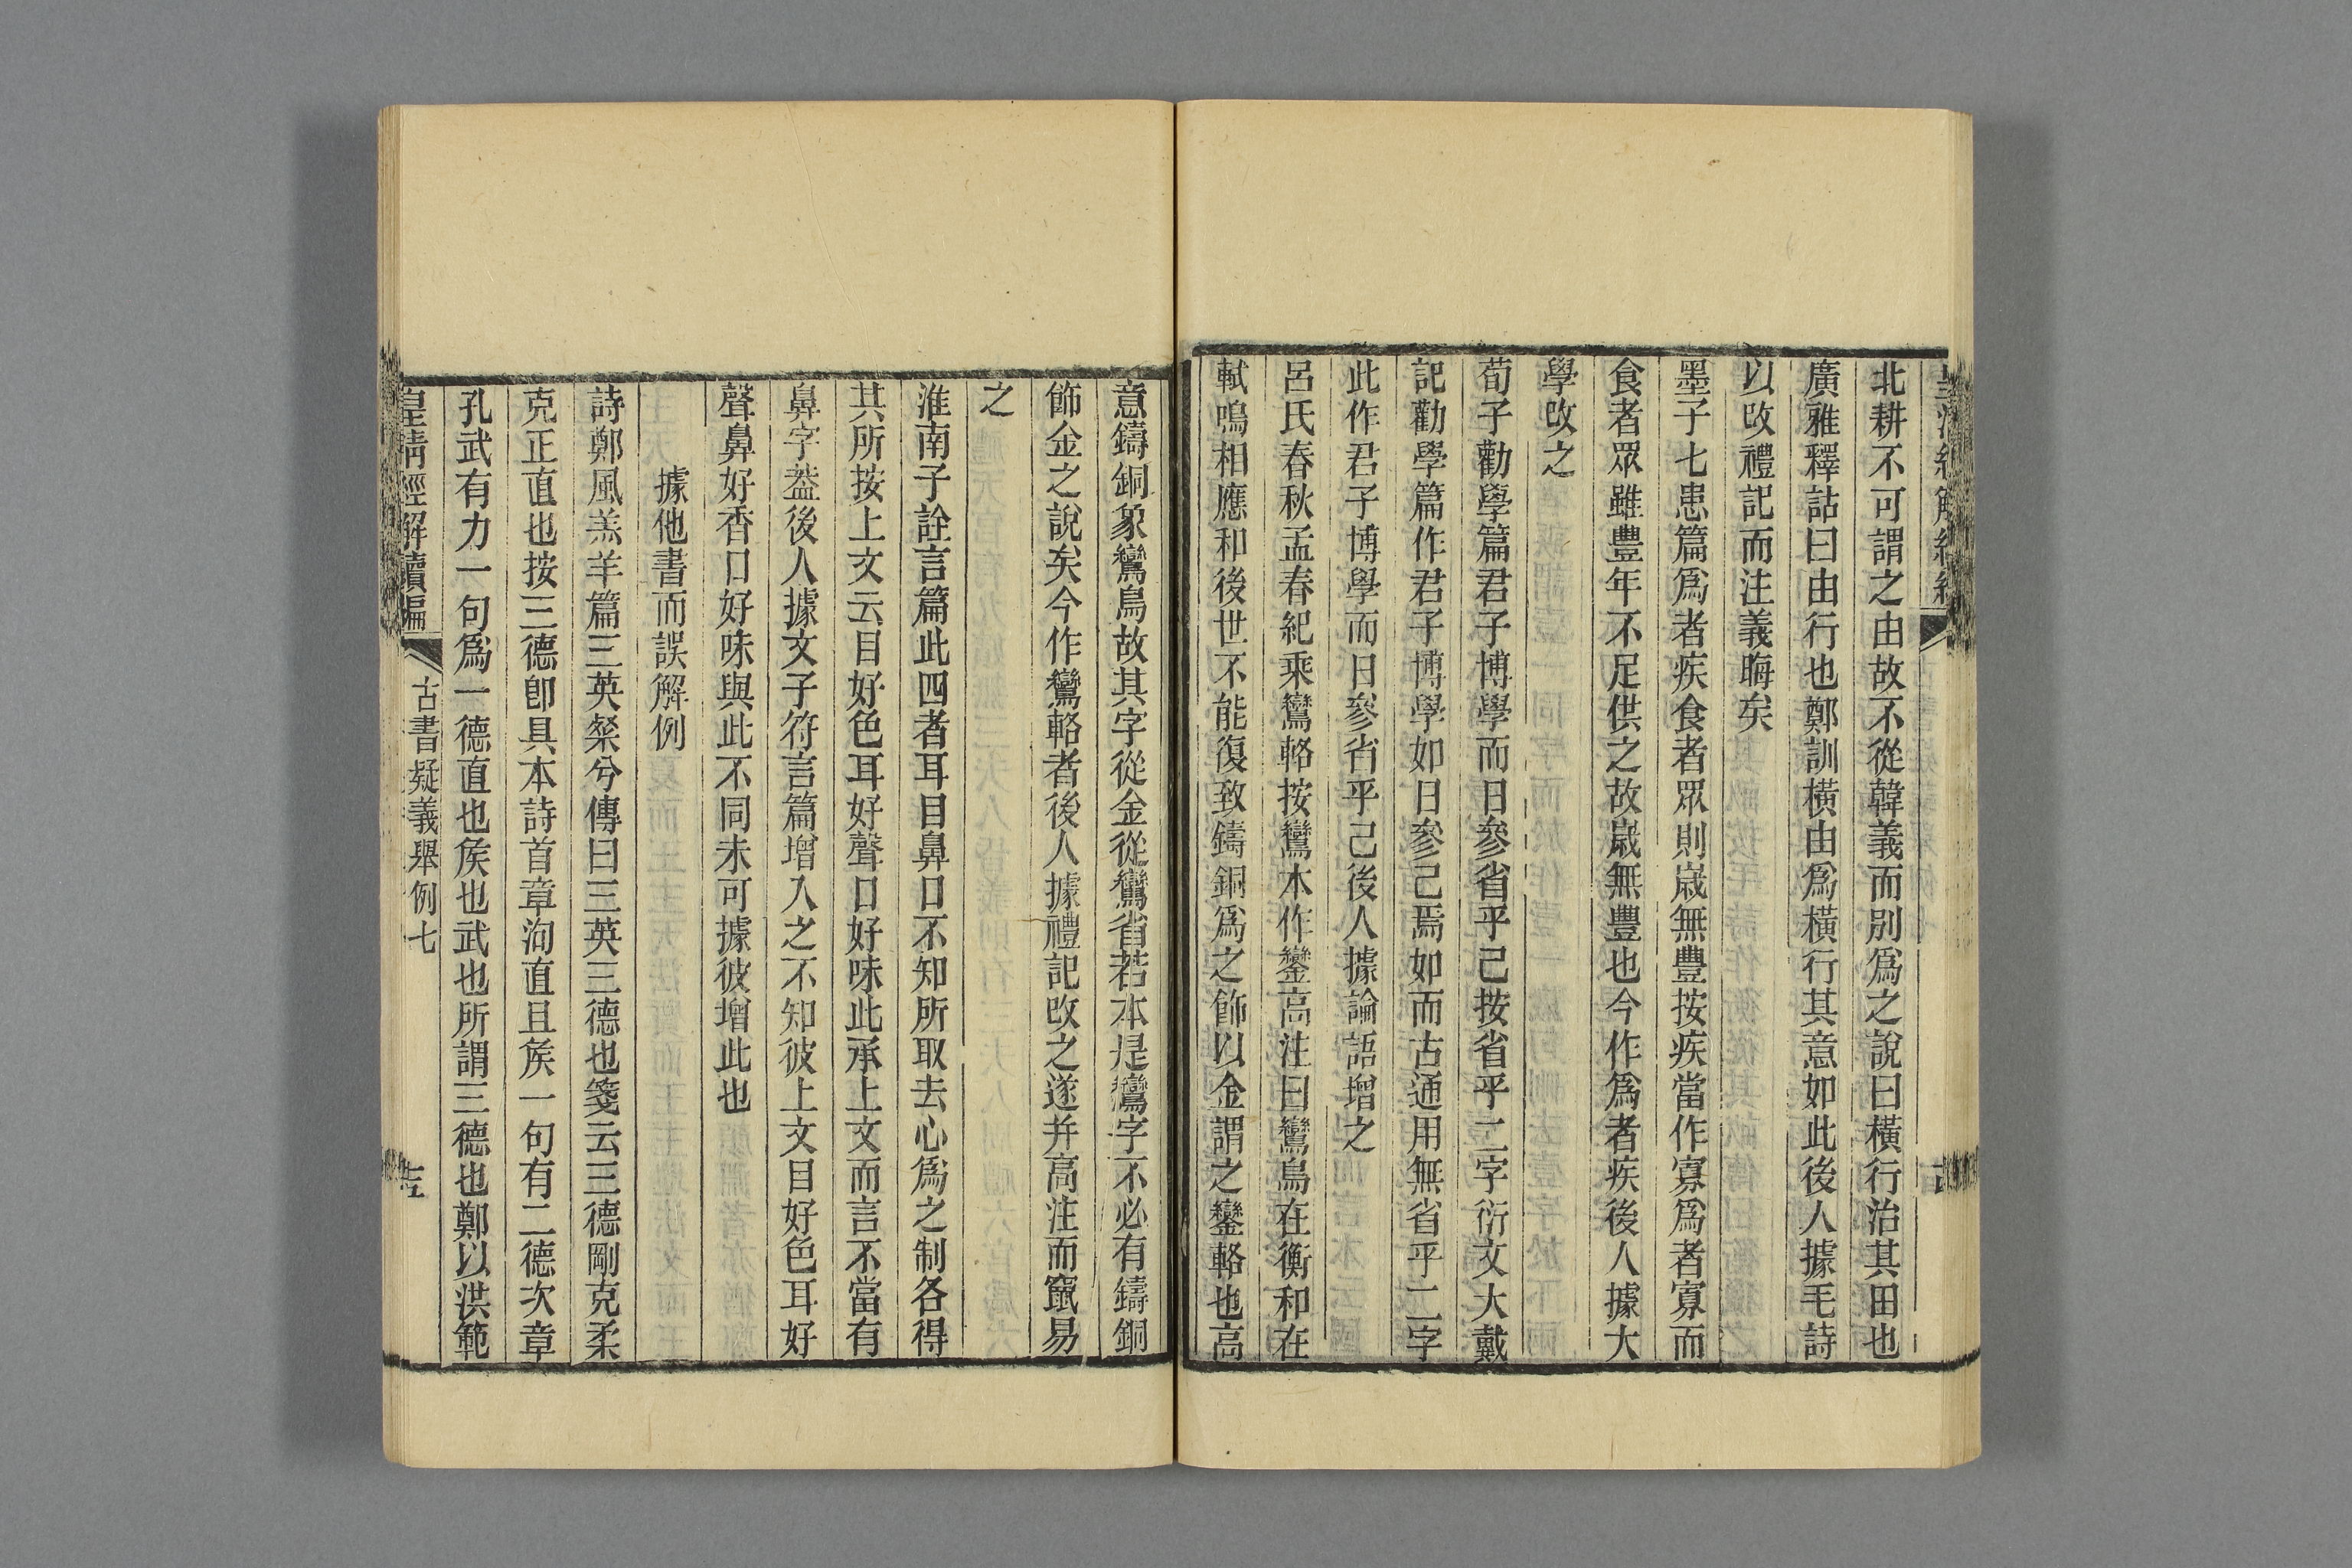 北耕不可謂之由故不從韓義而別爲之說曰橫行治其田也
廣雅釋詁曰由行也鄭訓橫由爲橫行其意如此後人據毛詩
以改禮記而注義晦矣
墨子七患篇爲者疾食者眾則嵗無豐按疾當作寡爲者寡而
食者眾雖豐年不足供之故嵗無豐也今作爲者疾後人據大
學改之
荀子勸學篇君子博學而日參省乎己按省乎二字衍文大戴
記勸學篇作君子博學如日參己焉如而古通用無省乎二字
此作君子博學而日參省乎己後人據論語增之
呂氏春秋孟春紀乘鸞輅按鸞本作鑾高注曰鸞鳥在衡和在
軾鳴相應和後世不能復致鑄銅爲之飾以金謂之鑾輅也高
意鑄銅象鸞鳥故其字從金從鸞省若本是鸞字不必有鑄銅
飾金之說矣今作鸞輅者後人據禮記改之遂并高注而竄易
之
淮南子詮言篇此四者耳目鼻口不知所取去心爲之制各得
其所按上文云目好色耳好聲口好味此承上文而言不當有
鼻字葢後人據文子符言篇增入之不知彼上文目好色耳好
聲鼻好香口好味與此不同未可據彼增此也
據他書而誤解例
詩鄭風羔羊篇三英粲兮傳曰三英三德也箋云三德剛克柔
克正直也按三德卽具本詩首章洵直且矦一句有二德次章
孔武有力一句爲一德直也矦也武也所謂三德也鄭以洪範
皇清經解續編
古書疑義舉例七